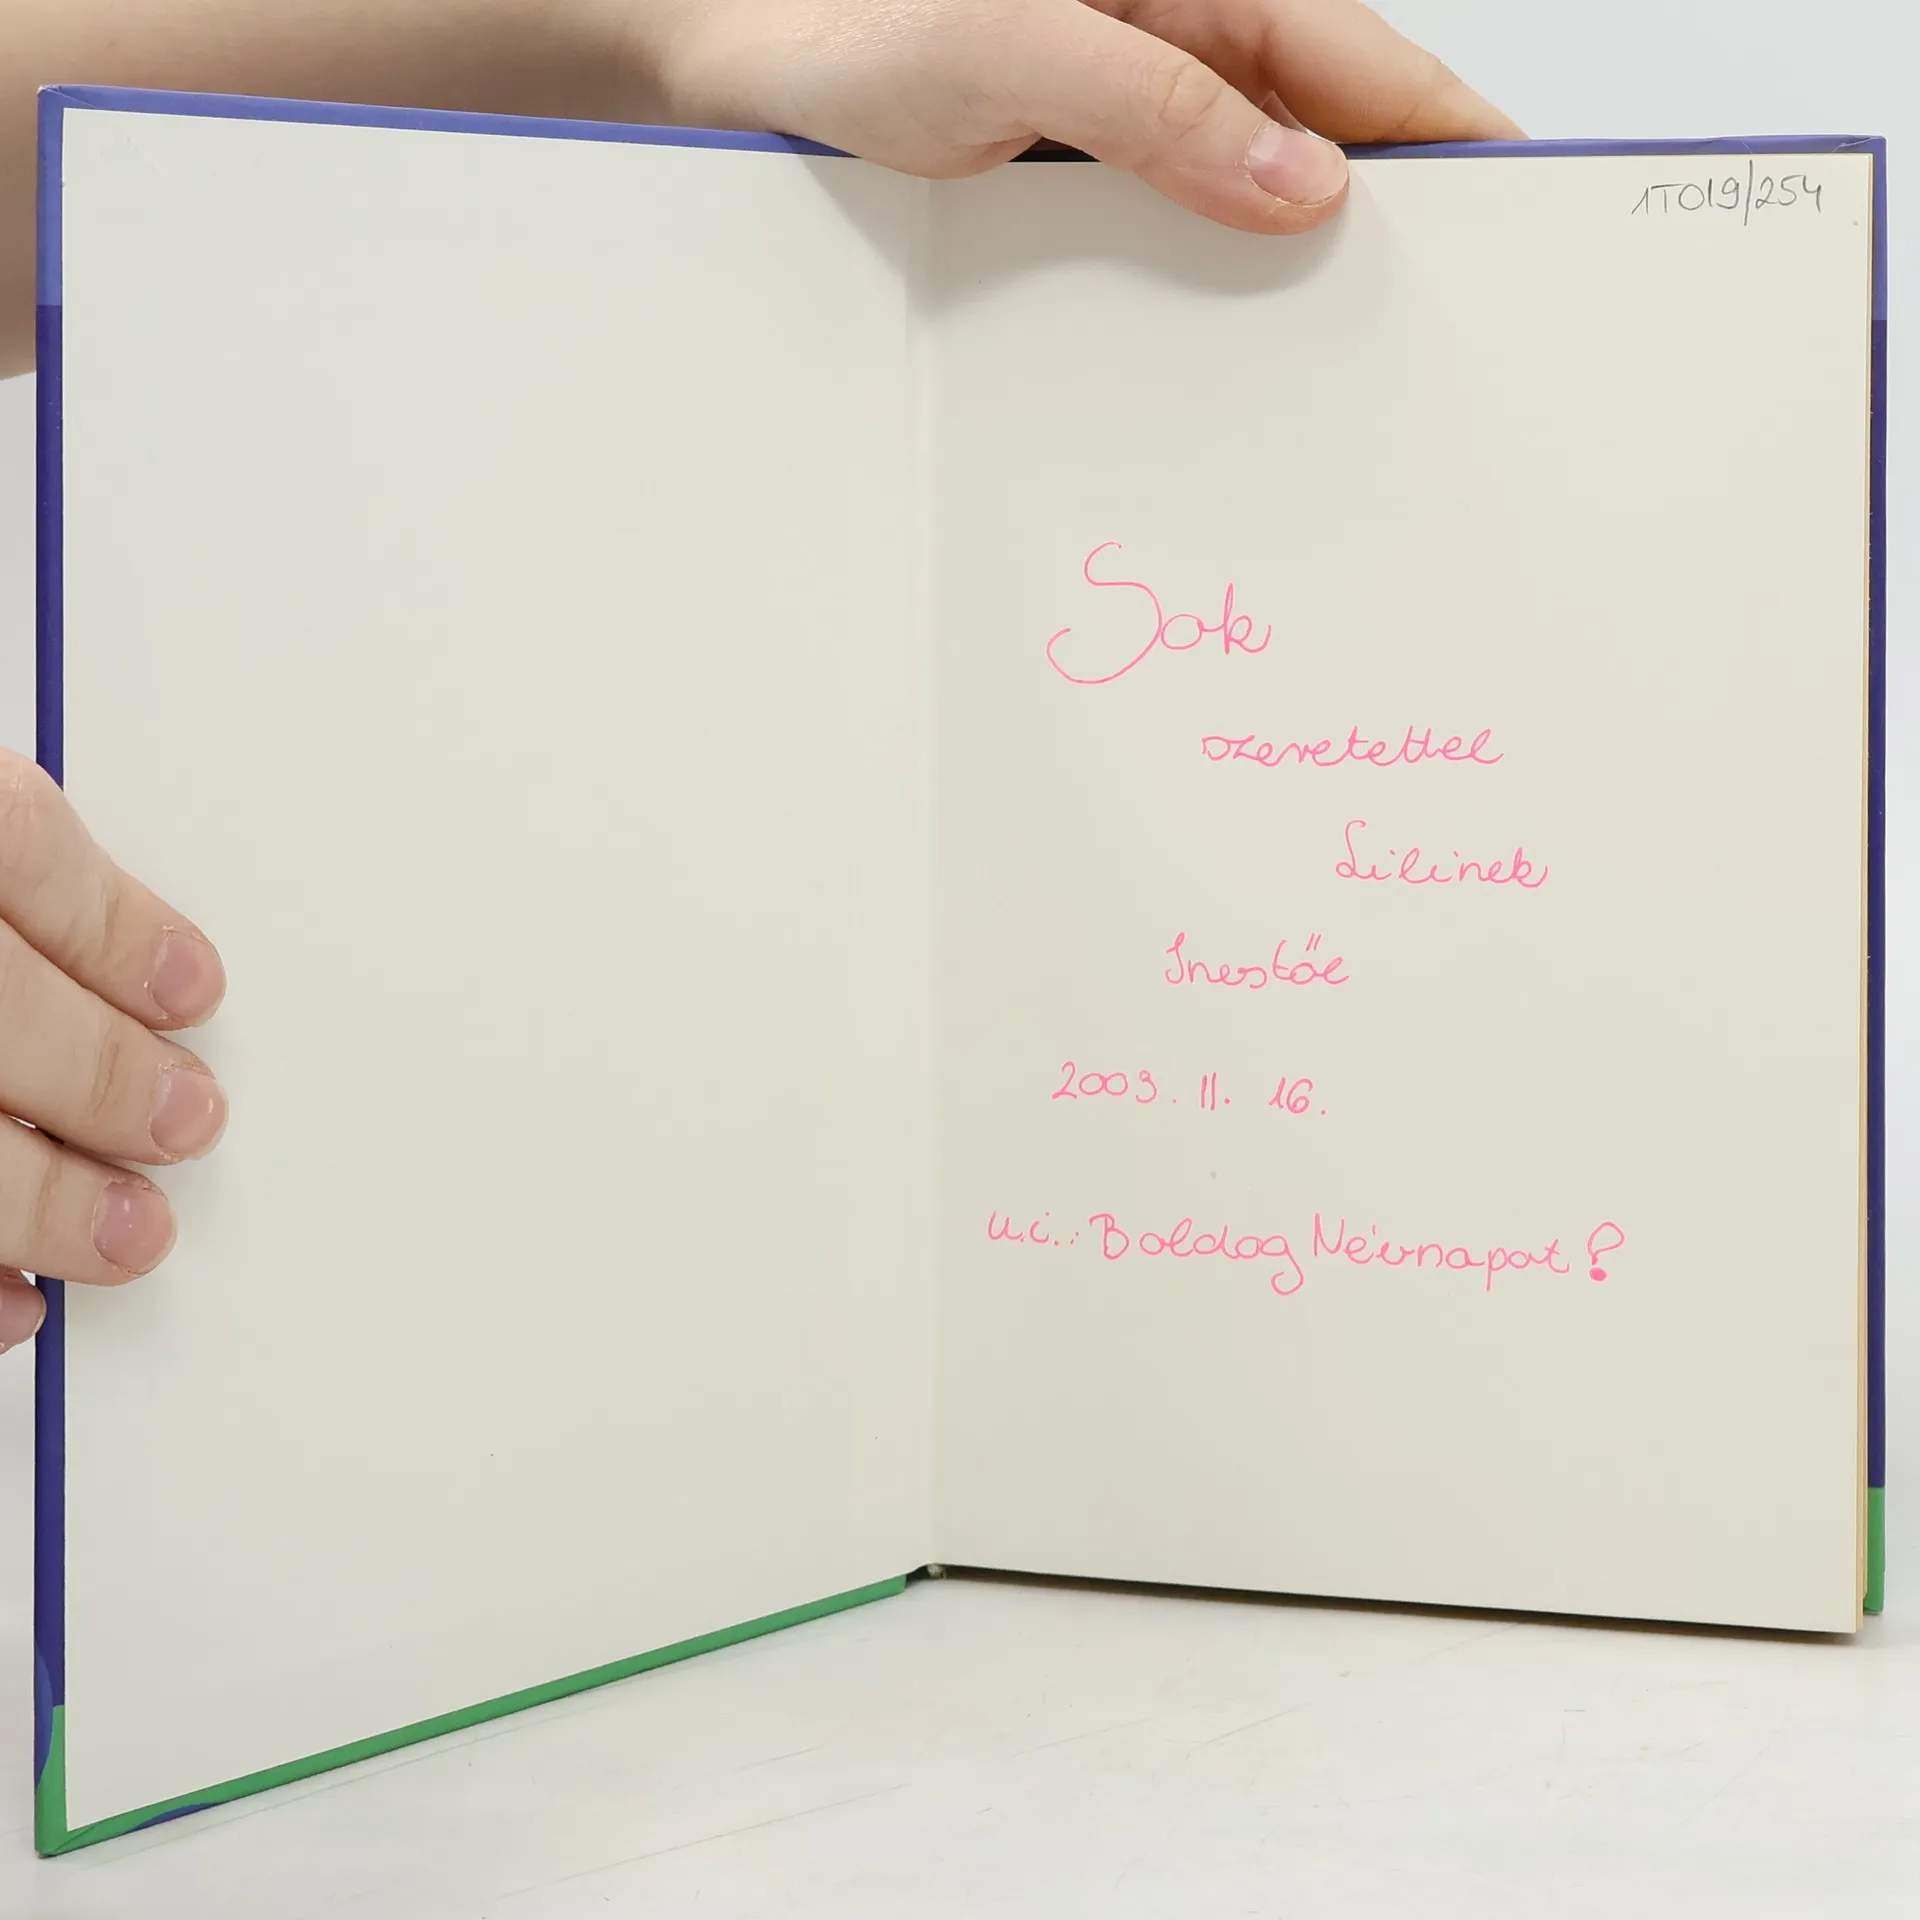 1TO19/254
Sok
szeretettel
Lilinek
Inestől
2003. 11. 16.
u.i.: Boldog Névnapot!